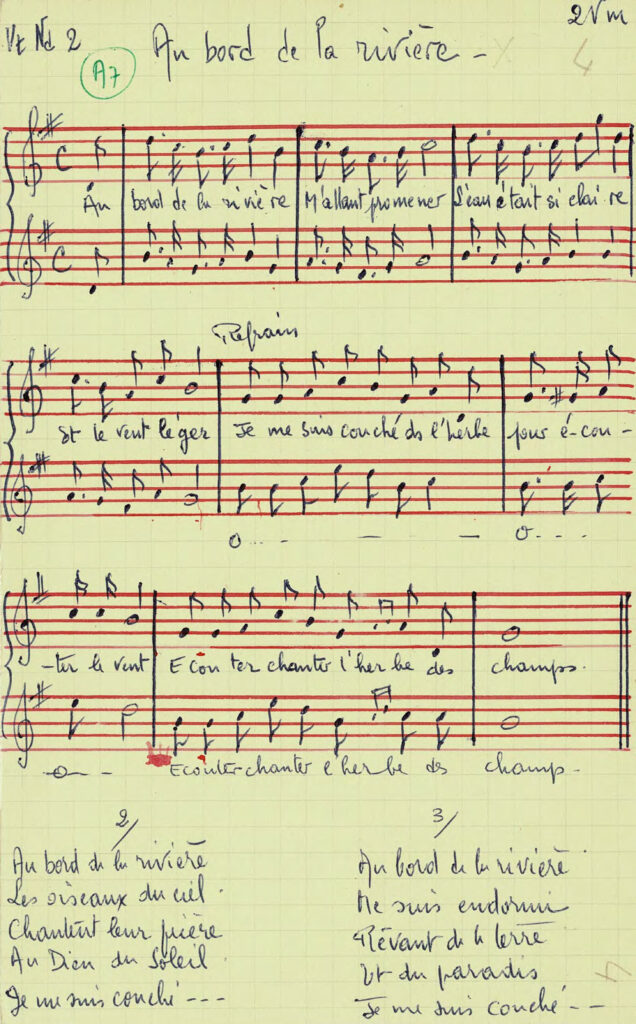 Vt Nd 2
Au bord de la rivière -
2V m
A7
4
Au bord de la rivière M'allant promener L'eau était si clai-re
C
C
Refrain
Et le vent léger Je me suis couché ds l'herbe pour é-cou-
O... - - - O....
-ter le vent Ecouter chanter l'herbe des champs.
-o- - Ecouter chanter l'herbe des champs -
2/
Au bord de la rivière
Les oiseaux du ciel.
Chantent leur prière
Au Dieu du Soleil.
Je me suis couché ---
3/
Au bord de la rivière
Me suis endormi
Rêvant de la terre
Et du paradis
Je me suis couché --
4